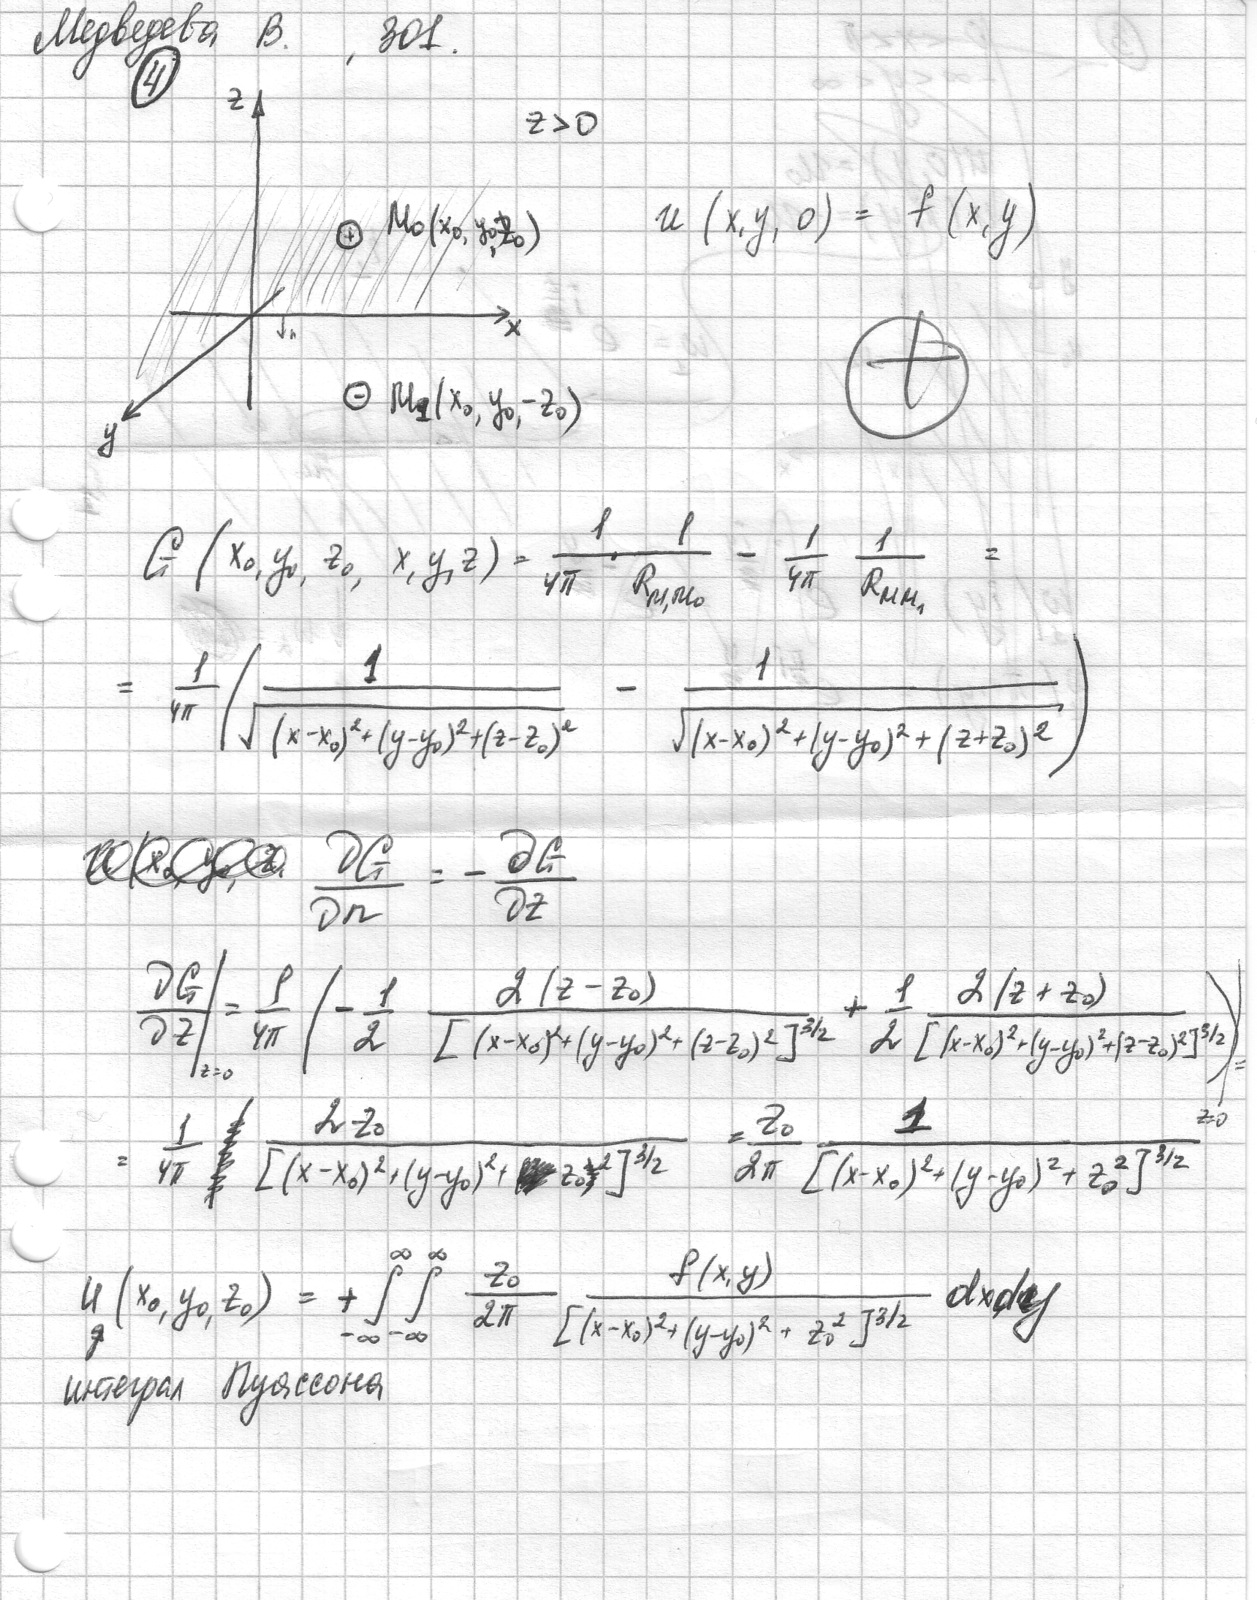 Медведева В. , 301.
4
z
z>0
M₀(x₀, y₀, z₀)
u (x,y, 0) = f (x,y)
+
x
n
- M₁(x₀, y₀, -z₀)
y
G (x₀, y₀, z₀, x, y, z) = 1/4π · 1/R_{M,M₀} - 1/4π 1/R_{MM₁} =
= 1/4π ( 1/√((x-x₀)²+(y-y₀)²+(z-z₀)²) - 1/√((x-x₀)²+(y-y₀)²+(z+z₀)²) )
∂G/∂n = - ∂G/∂z
∂G/∂z |_{z=0} = 1/4π ( - 1/2 2(z-z₀)/[(x-x₀)²+(y-y₀)²+(z-z₀)²]^{3/2} + 1/2 2(z+z₀)/[(x-x₀)²+(y-y₀)²+(z-z₀)²]^{3/2} )_{z=0} =
= 1/4π 2z₀/[(x-x₀)²+(y-y₀)²+z₀²]^{3/2} = z₀/2π 1/[(x-x₀)²+(y-y₀)²+z₀²]^{3/2}
u (x₀, y₀, z₀) = + ∫_{-∞}^{∞} ∫_{-∞}^{∞} z₀/2π f(x,y)/[(x-x₀)²+(y-y₀)²+z₀²]^{3/2} dxdy
интеграл Пуассона